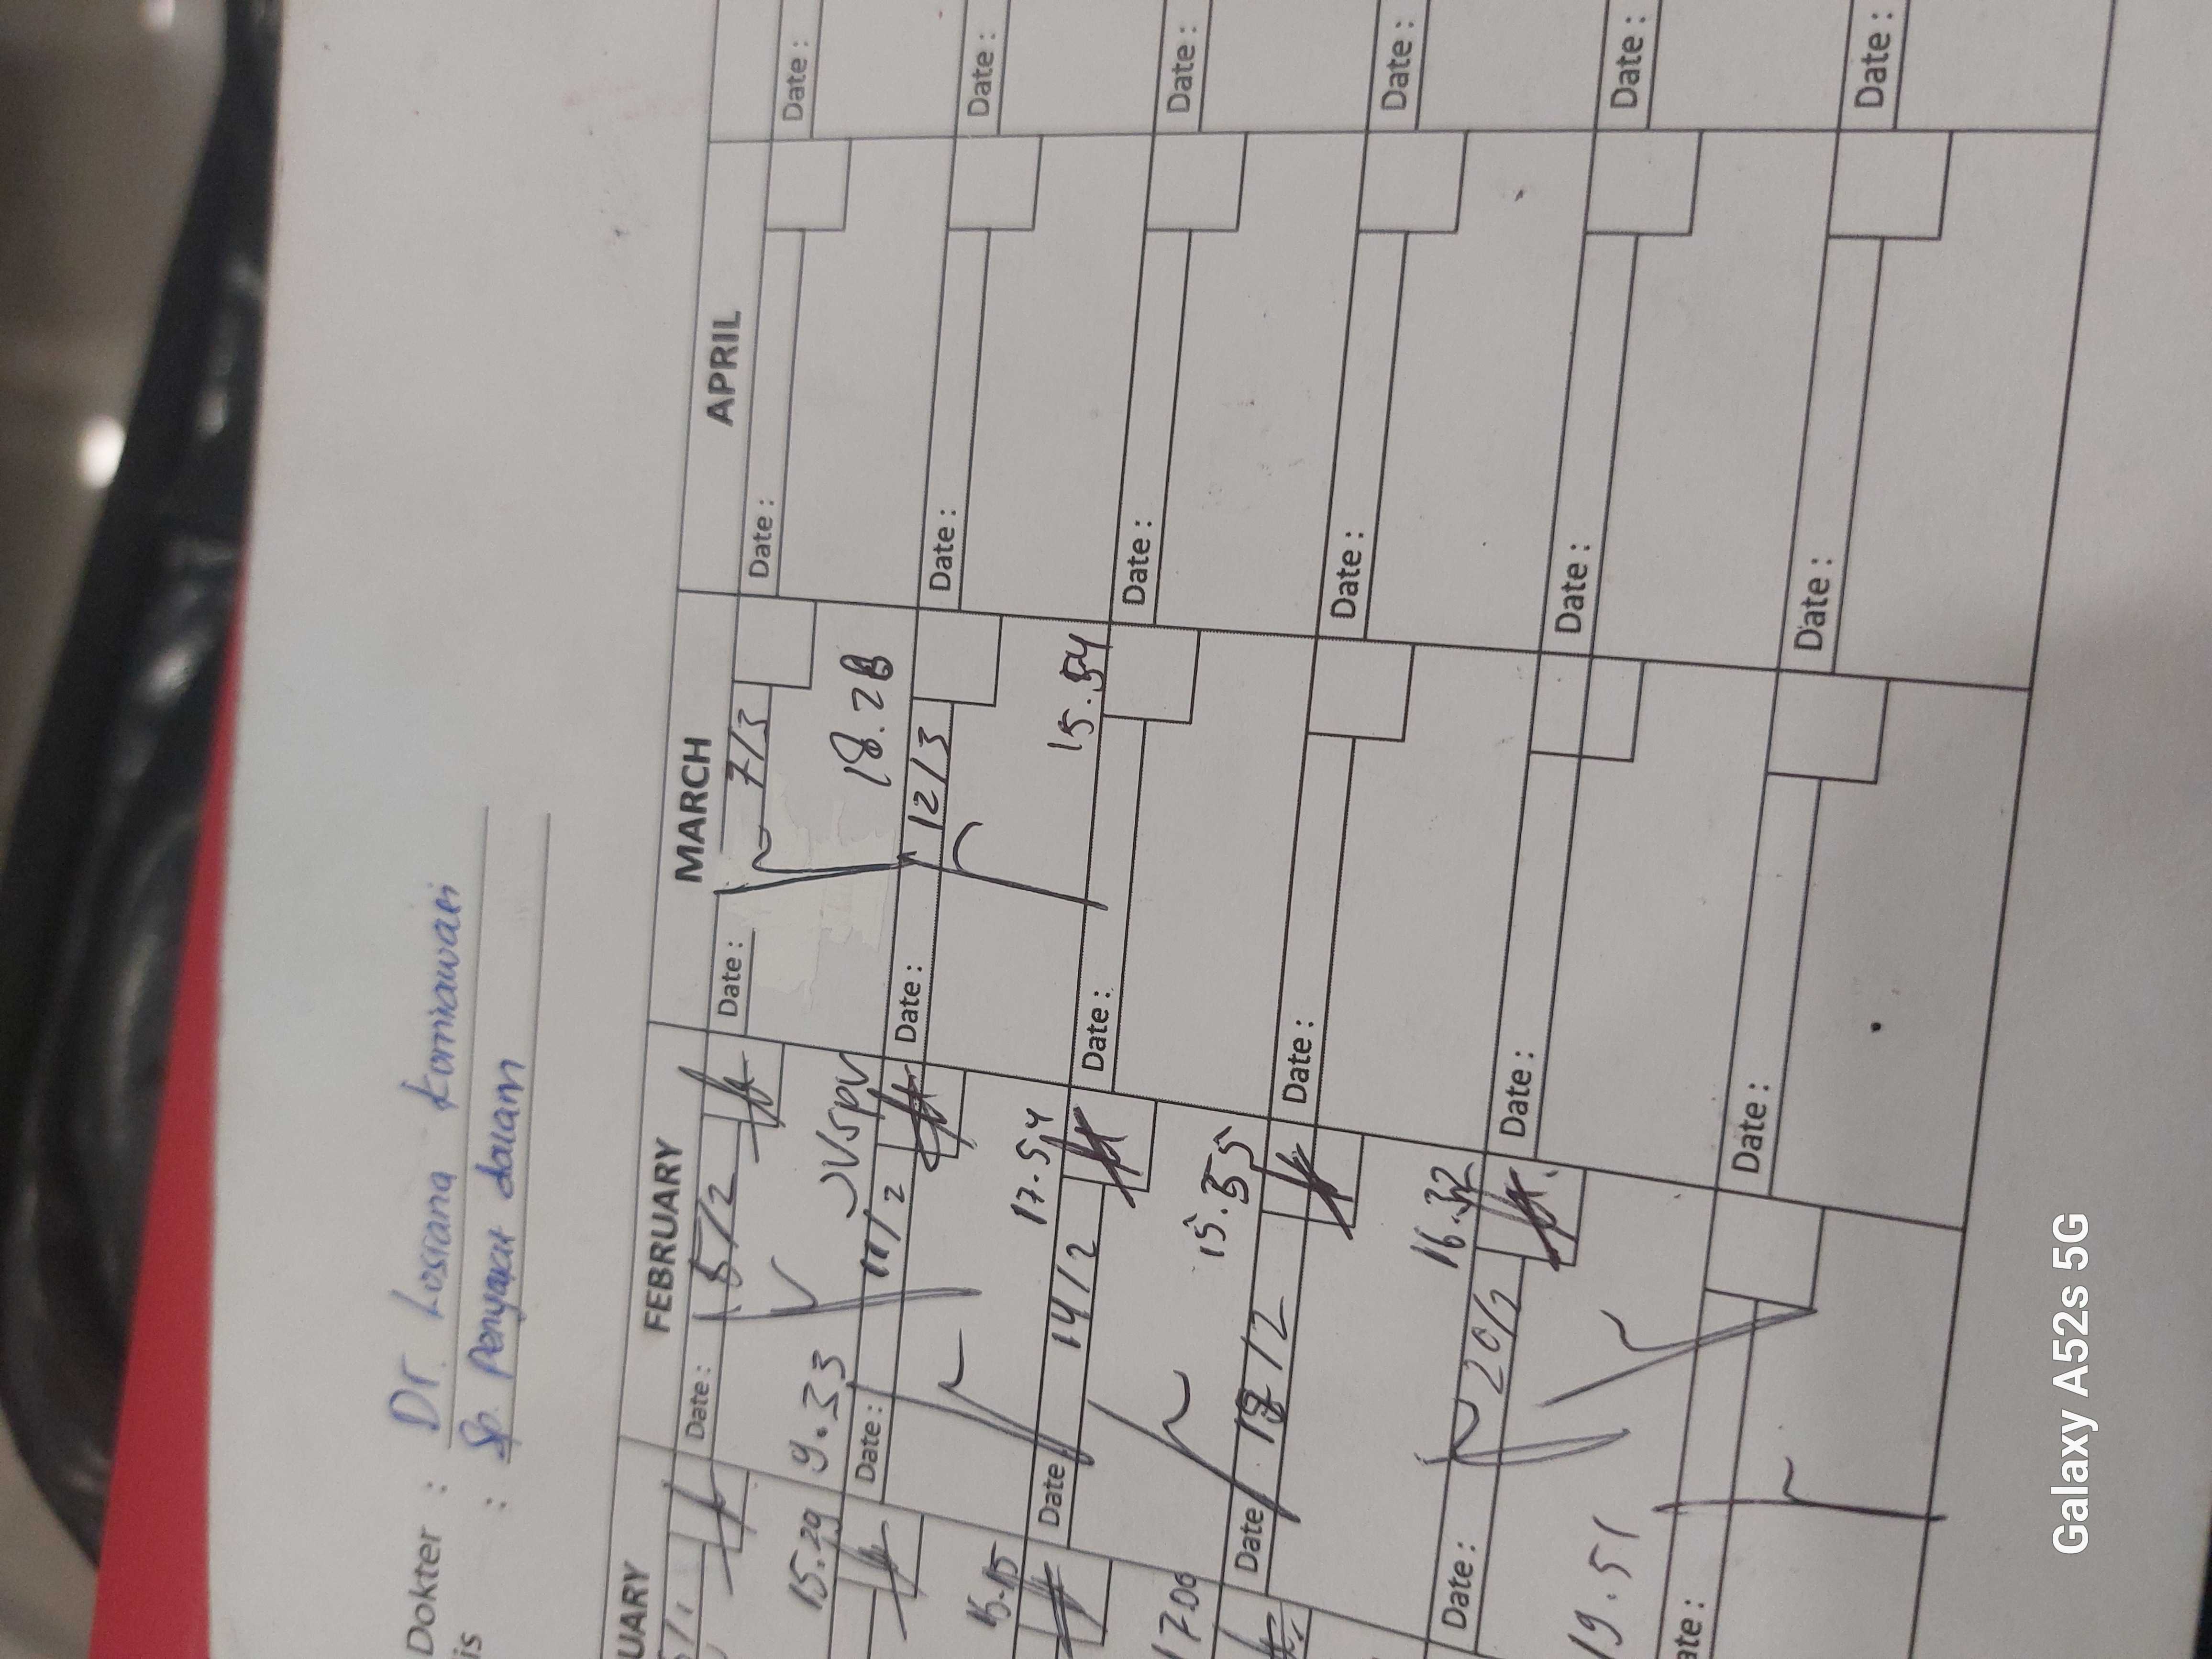 Dokter : Dr. Lusiana Kurniawati
is : Sp. Penyakit dalam
UARY FEBRUARY MARCH APRIL
Date : 5/2
Date : 7/3
Date :
Date :
15.29
9.33
18.28
Date : 11/2
Date : 12/3
Date :
Date :
15.15
17.54
15.54
Date 14/2
Date :
Date :
Date :
17.06
15.55
Date 18/2
Date :
Date :
Date :
16.32
Date : 20/2
Date :
Date :
Date :
19.51
ate :
Date :
Date :
Date :
Galaxy A52s 5G